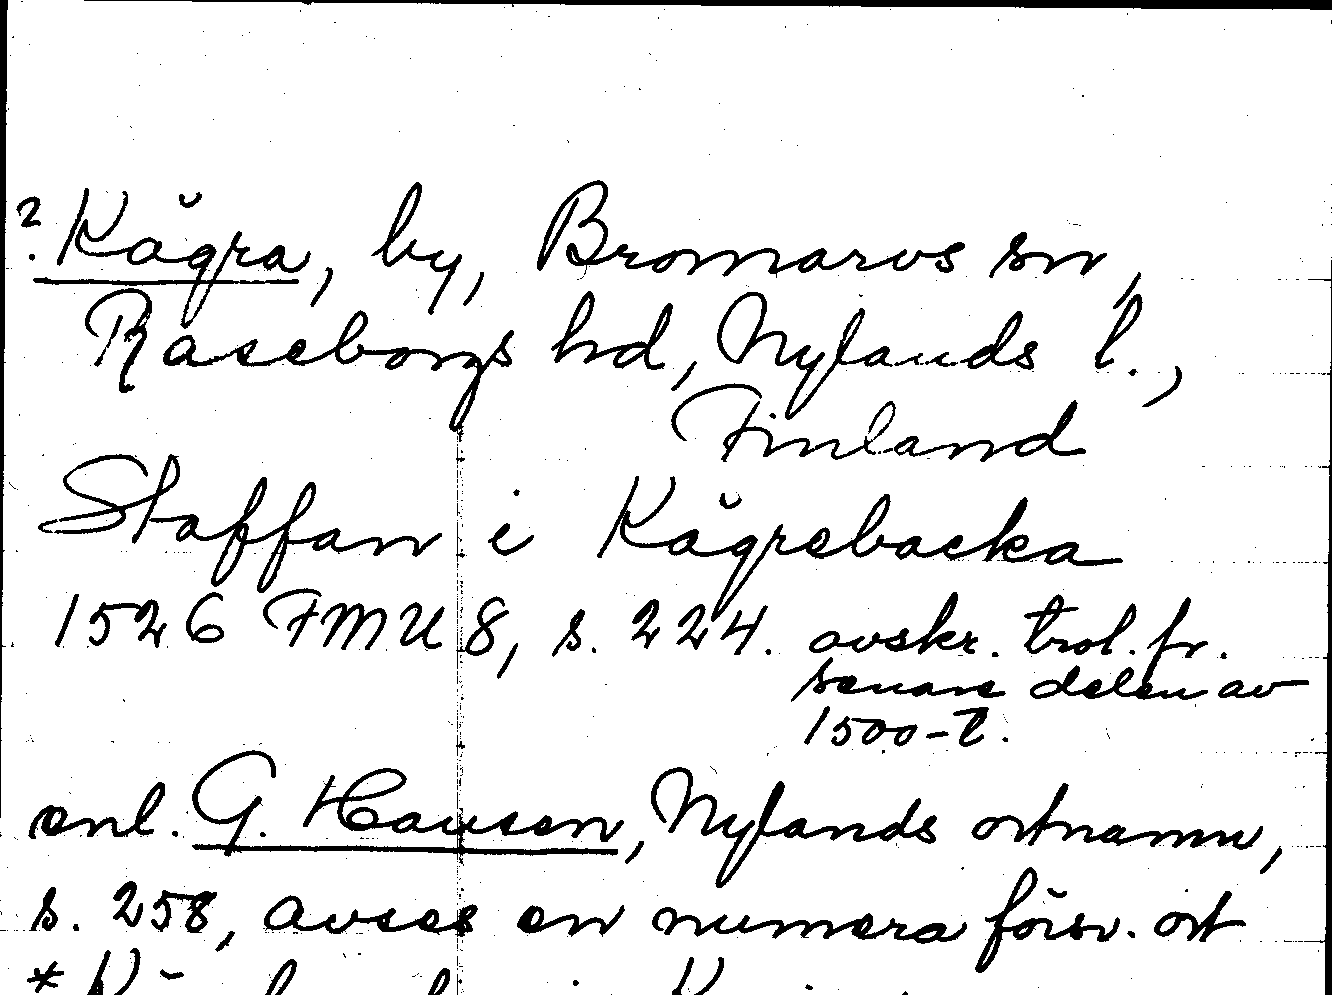 ? Kågra, by, Bromarvs sn,
Raseborgs hd, Nylands l.,
Finland
Staffan i Kågrebacka
1526 FMU 8, s. 224. avskr. trol. fr.
senare delen av
1500-t.
enl. G. Hausen, Nylands ortnamn,
s. 258, avses en numera försv. ort